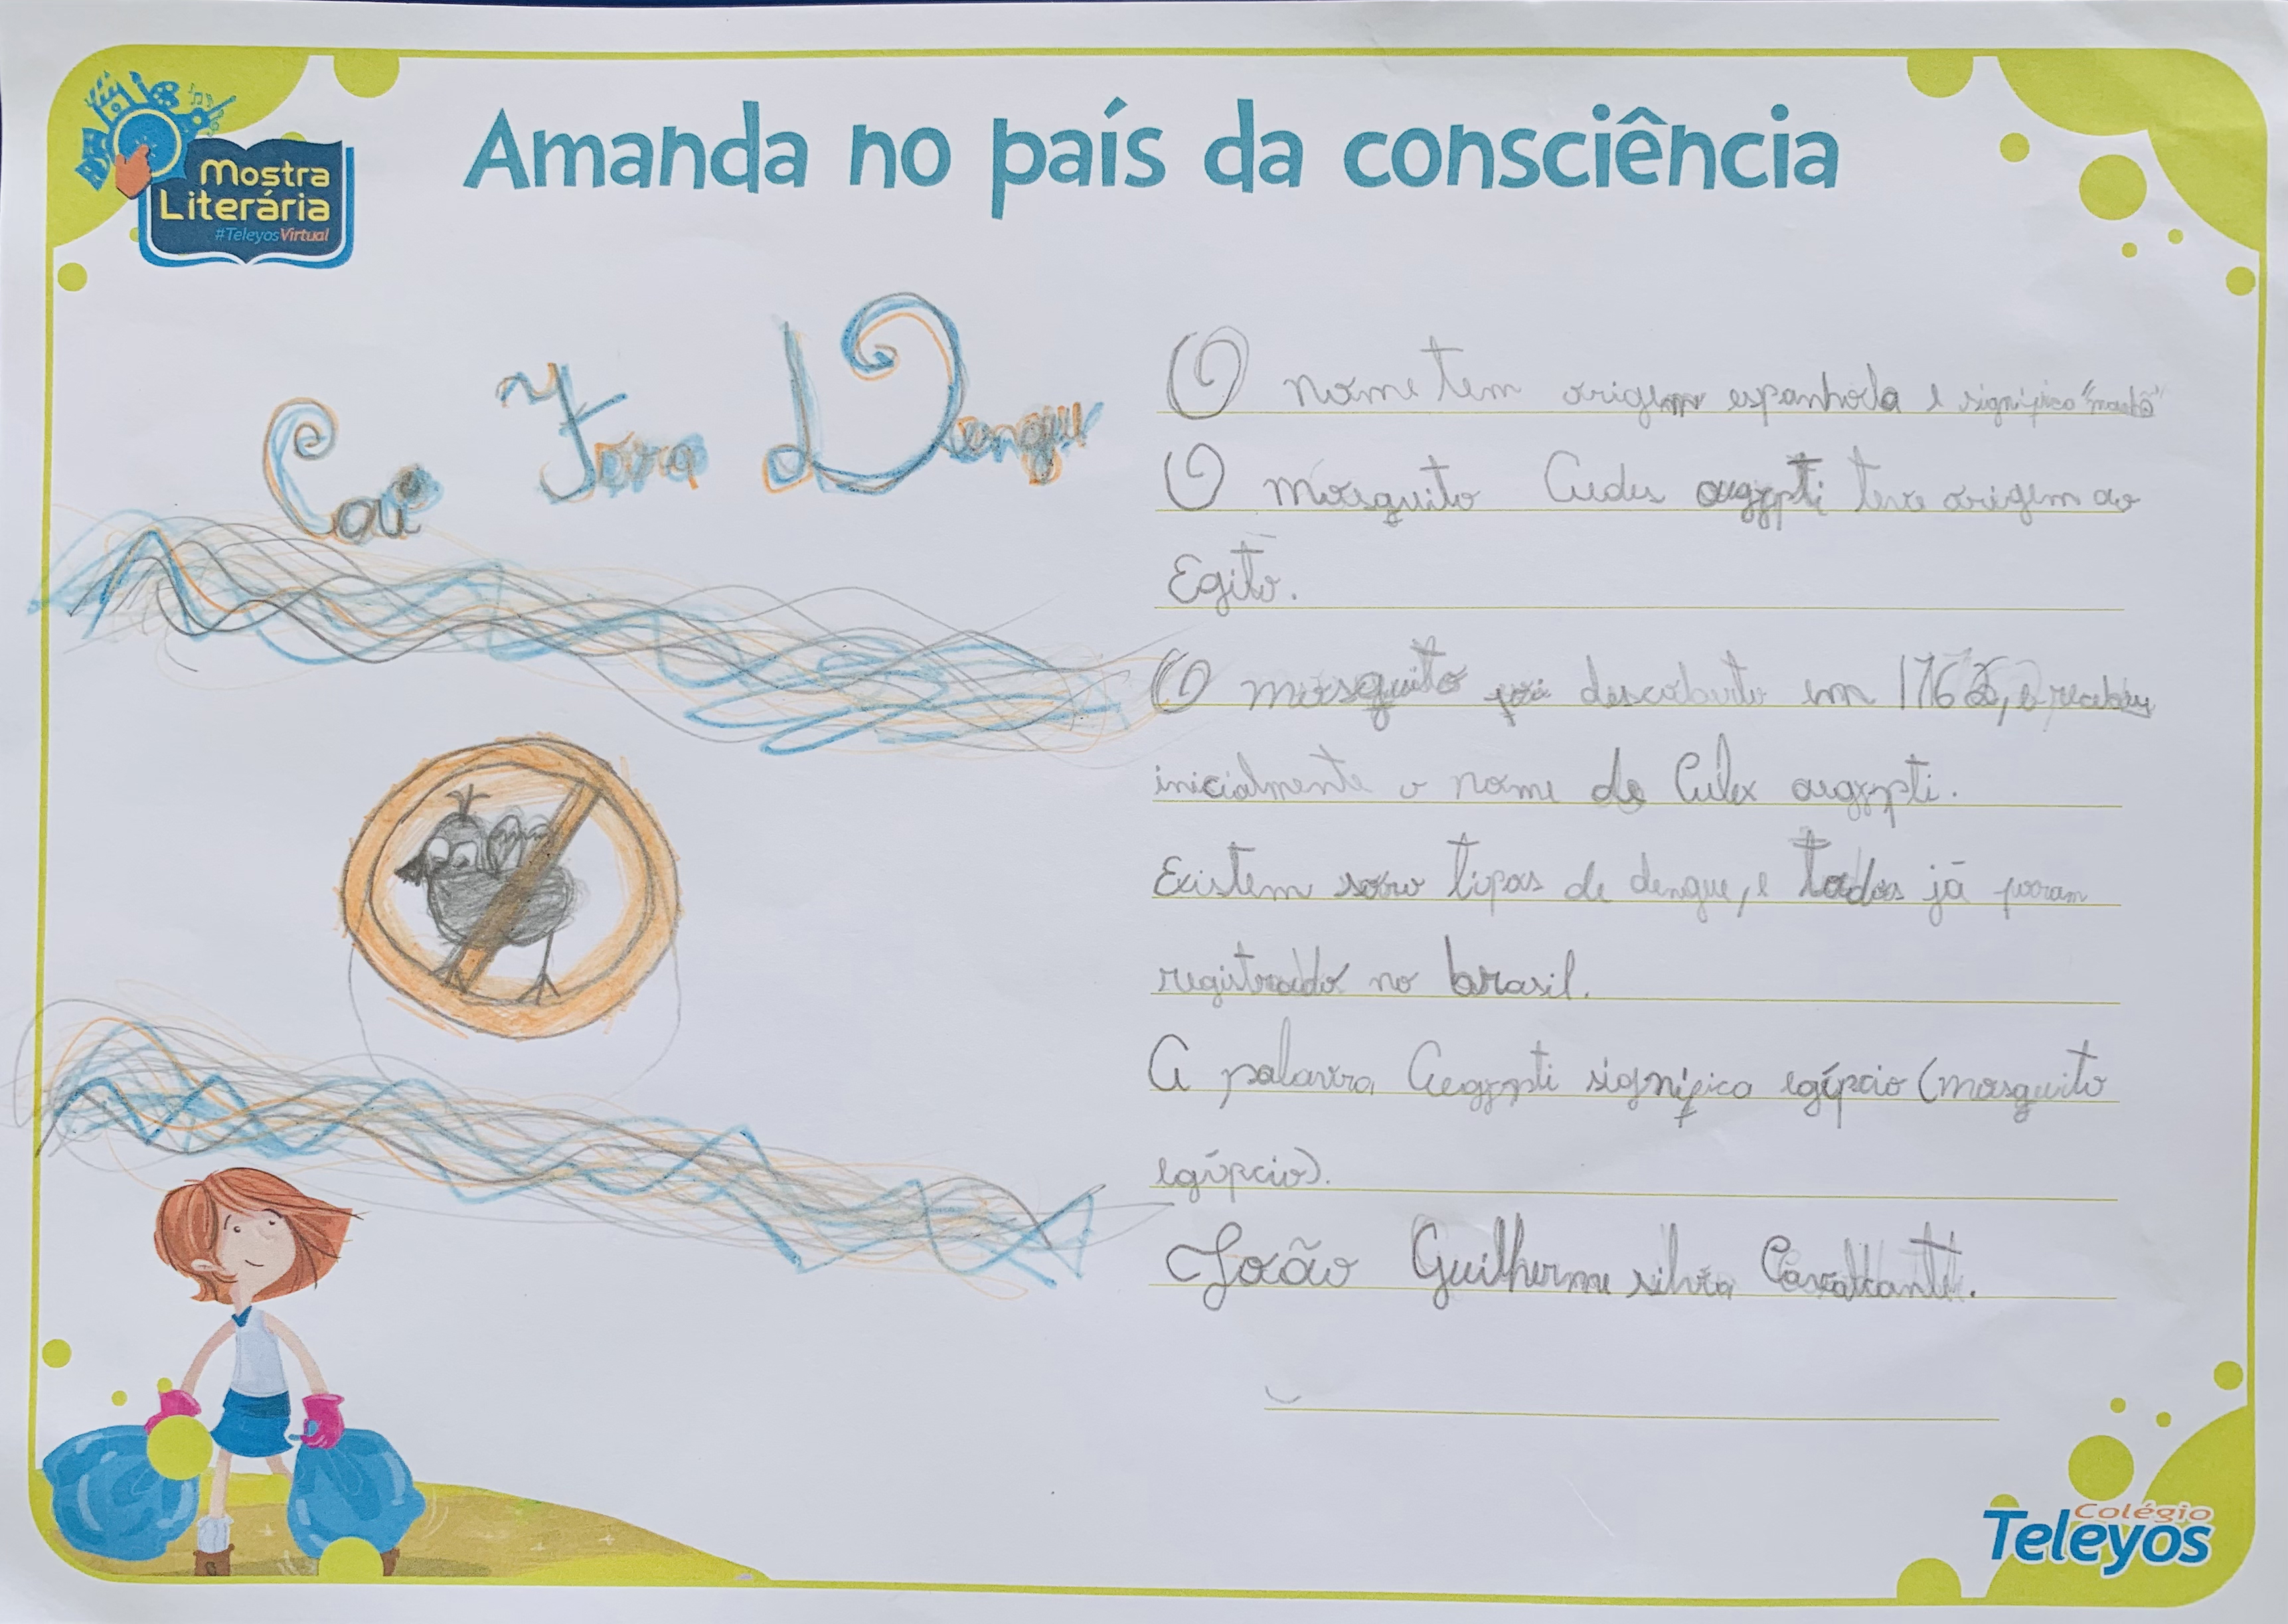 Mostra
Literária
#TeleyosVirtual
Amanda no país da consciência
Cai Fora Dengue
O nome tem origem espanhola e significa
O mosquito Aedes aegypti teve origem ao
Egito.
O mosquito foi descoberto em 1762, e recebeu
inicialmente o nome de Culex aegypti.
Existem tipos de dengue, e todos já foram
registrado no brasil.
A palavra Aegypti significa egípcio (mosquito
egípcio).
João Guilherme silva Cavalcanti.
Colégio
Teleyos